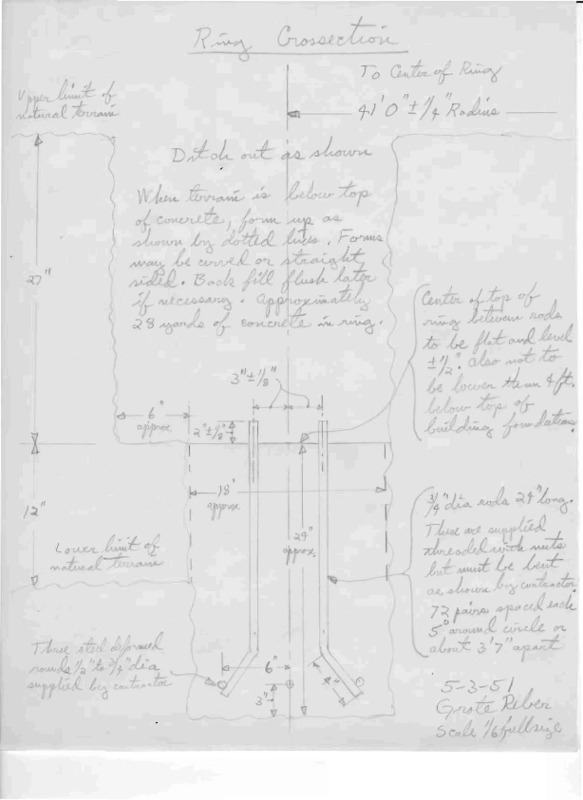 Ring Crossection
To Center of Ring
41' 0" ± 1/4" Radius
Upper limit of
natural terrain
Ditch out as shown
When terrain is below top
of concrete, form up as
shown by dotted lines. Forms
may be curved or straight
sided. Back fill flush later
if necessary. Approximately
28 yards of concrete in ring.
27"
Center of top of
ring between rods
to be flat and level
± 1/2". Also not to
be lower than 4 ft.
below top of
building foundation.
3" ± 1/8"
6"
approx.
2" ± 1/2"
18"
approx
12"
24"
approx.
3/4" dia rods 24" long.
These are supplied
threaded with nuts
but must be bent
as shown by contractor.
72 pairs spaced each
5° around circle or
about 3' 7" apart
Lower limit of
natural terrain
Three steel deformed
rounds 1/2" to 3/4" dia
supplied by contractor
6"
4"
3"
5-3-51
Grote Reber
Scale 1/6 full size